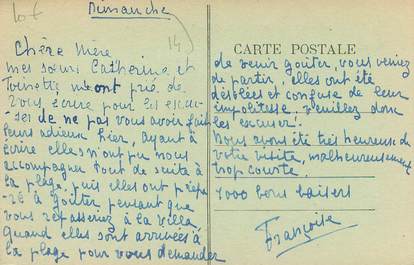 Dimanche
CARTE POSTALE
Chère Mère
mes sœurs Catherine et
Toinette m'ont prié de
vous écrire pour les excu-
ser de ne pas vous avoir fait
leurs adieux hier, ayant à
écrire elles n'ont pu nous
accompagner tout de suite à
la plage, puis elles ont prépa-
ré à goûter pendant que
vous repasseriez à la villa,
quand elles sont arrivées à
la plage pour vous demander
de venir goûter, vous veniez
de partir, elles ont été
désolées et confuse de leur
impolitesse. veuillez donc
les excuser.
Nous avons été très heureuses de
votre visite, malheureusement
trop courte.
1000 bons baisers
Françoise